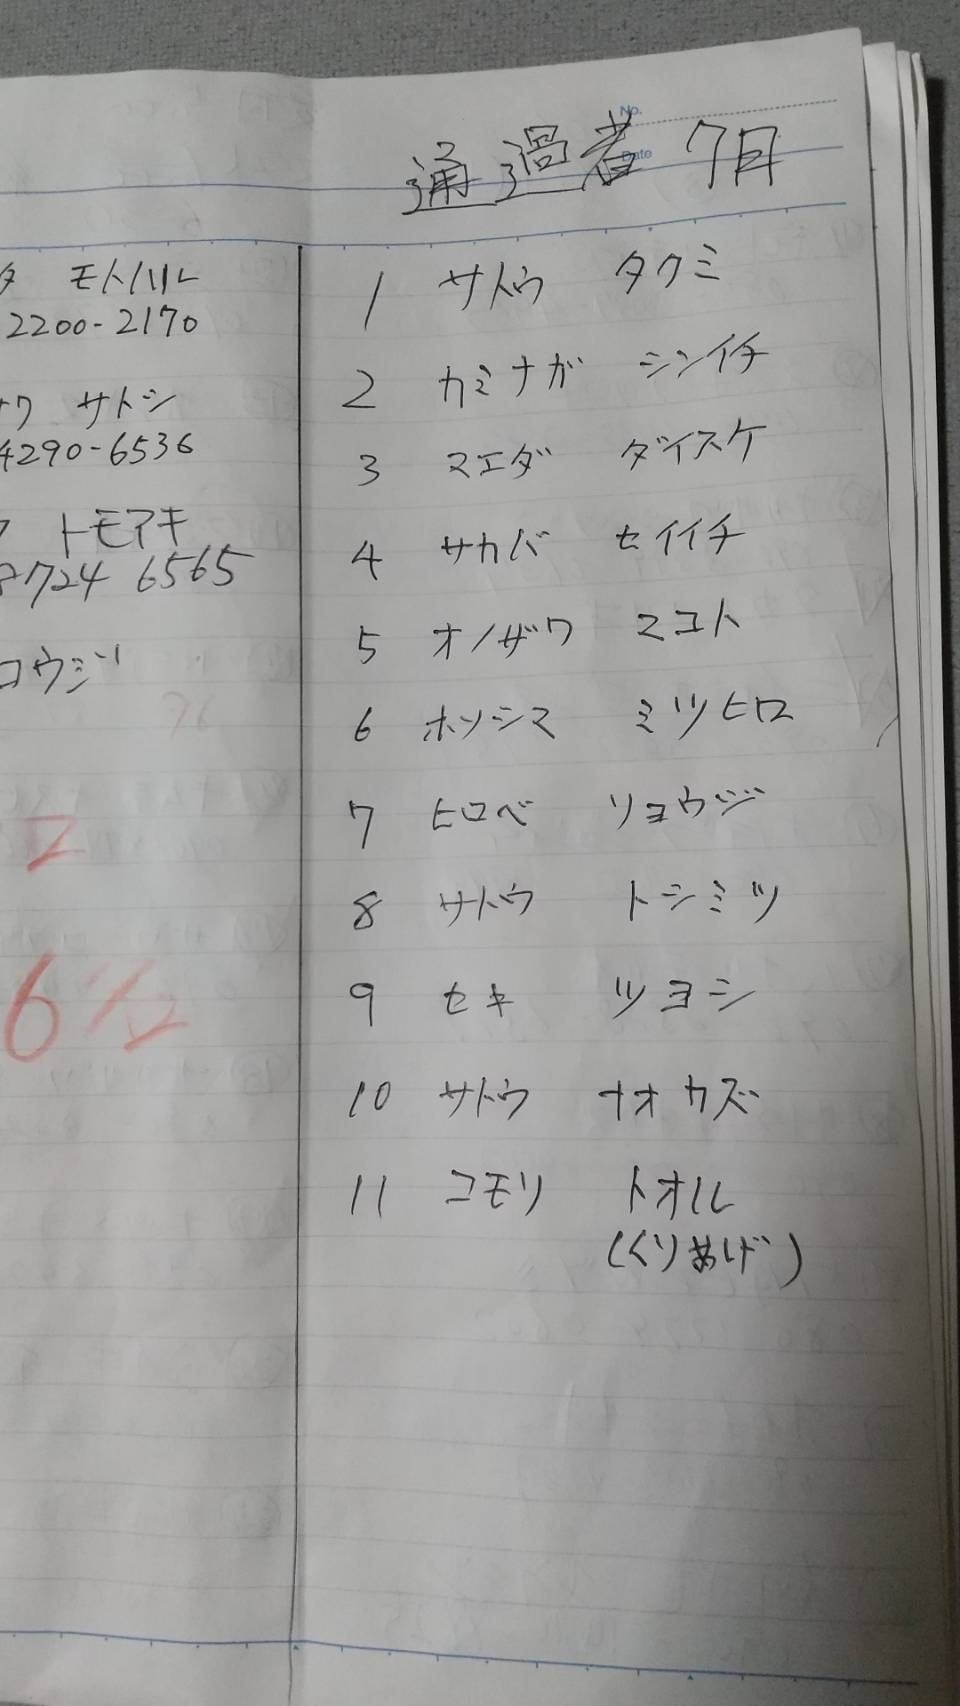 通過者 7月
No.
Date
タ モトハル
2200-2170
サトシ
4290-6536
トモアキ
8724 6565
コウジ
1 サトウ タクミ
2 カミナガ シンイチ
3 マエダ ダイスケ
4 サカバ セイイチ
5 オノザワ マコト
6 ホソシマ ミツヒロ
7 ヒロベ リョウジ
8 サトウ トシミツ
9 セキ ツヨシ
10 サトウ ナオカズ
11 コモリ トオル
(くりあげ)